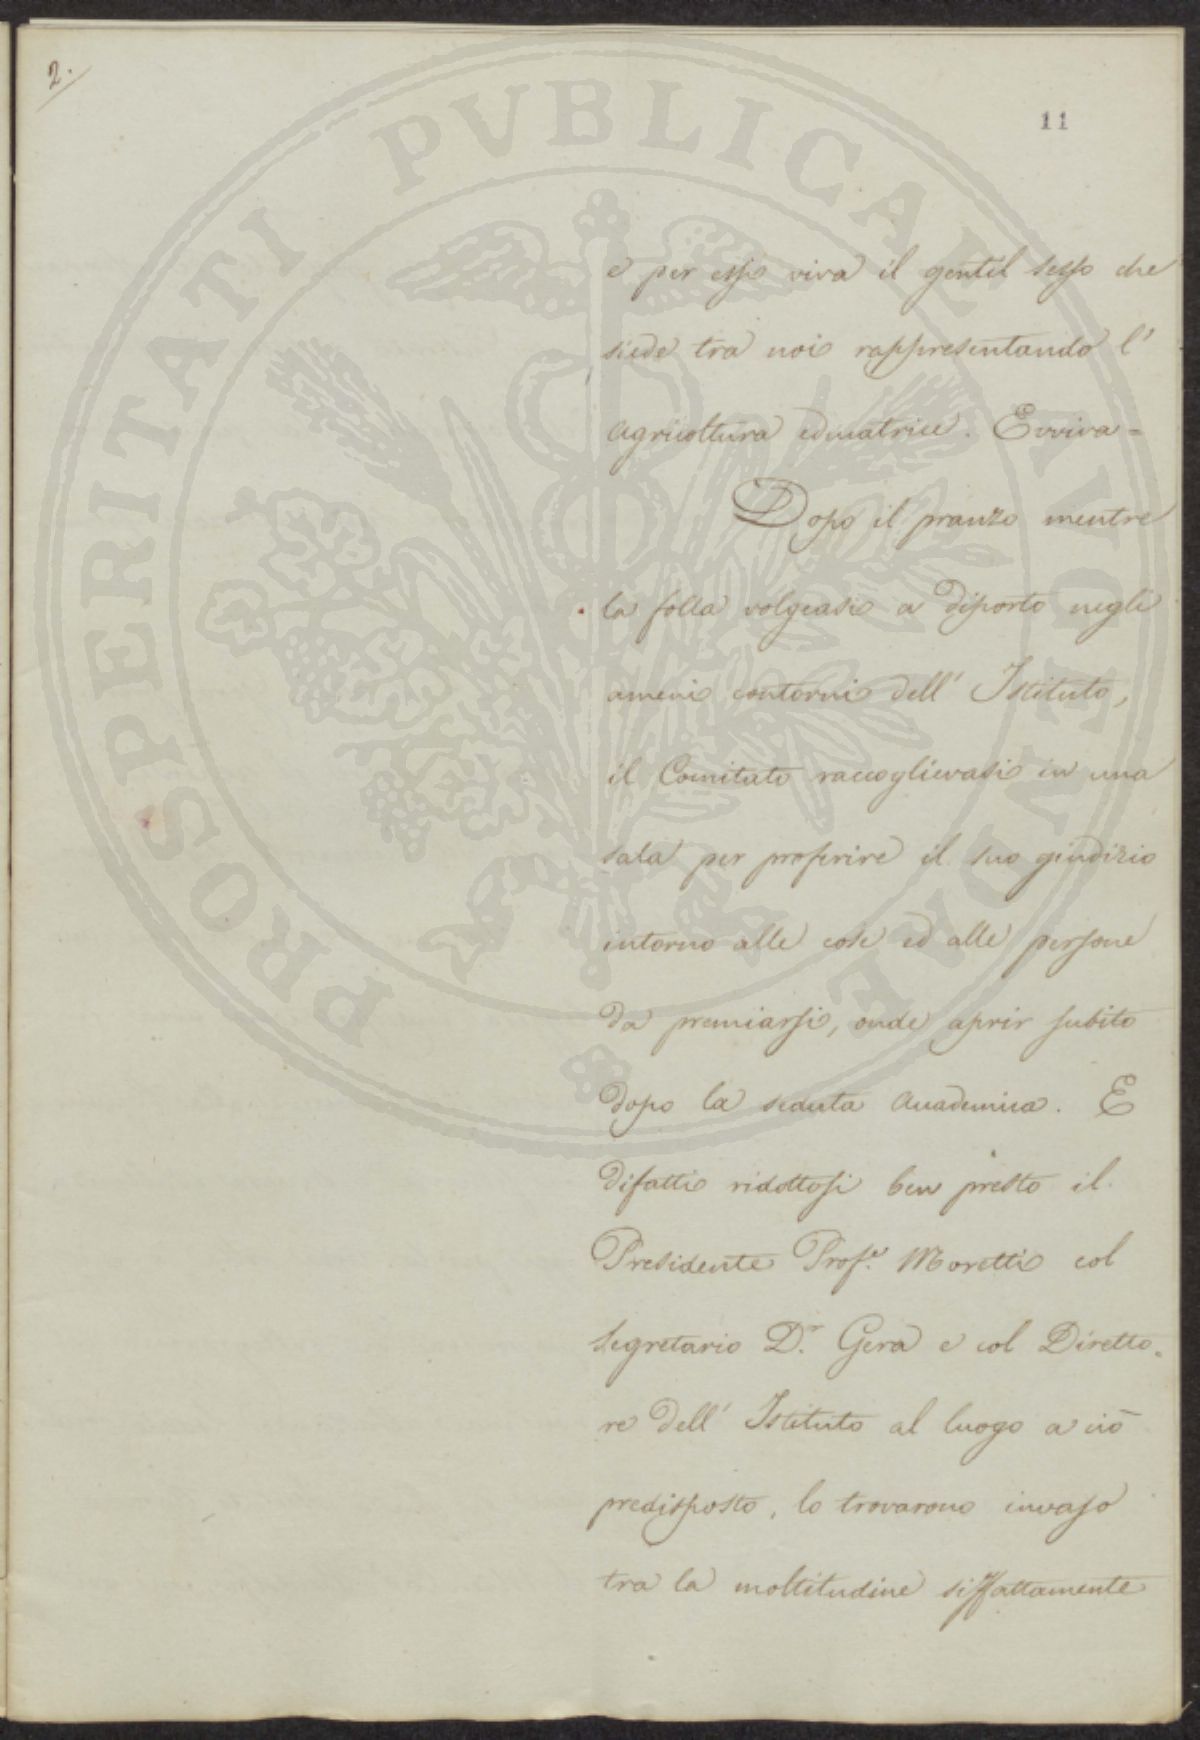 2.
11
PROSPERITATI PUBLICAE AUGENDAE
e per essi viva il gentil sesso che
siede tra noi rappresentando l'
agricoltura educatrice. Evviva=
Dopo il pranzo mentre
la folla volgeasi a diporto negli
ameni contorni dell' Istituto,
il Comitato raccoglievasi in una
sala per proferire il suo giudizio
intorno alle cose ed alle persone
da premiarsi, onde aprir subito
dopo la seduta Accademica. E
difatti ridottosi ben presto il
Presidente Prof.e Moretti col
Segretario D.r Gera e col Diretto-
re dell' Istituto al luogo a ciò
predisposto, lo trovarono invaso
tra la moltitudine siffattamente